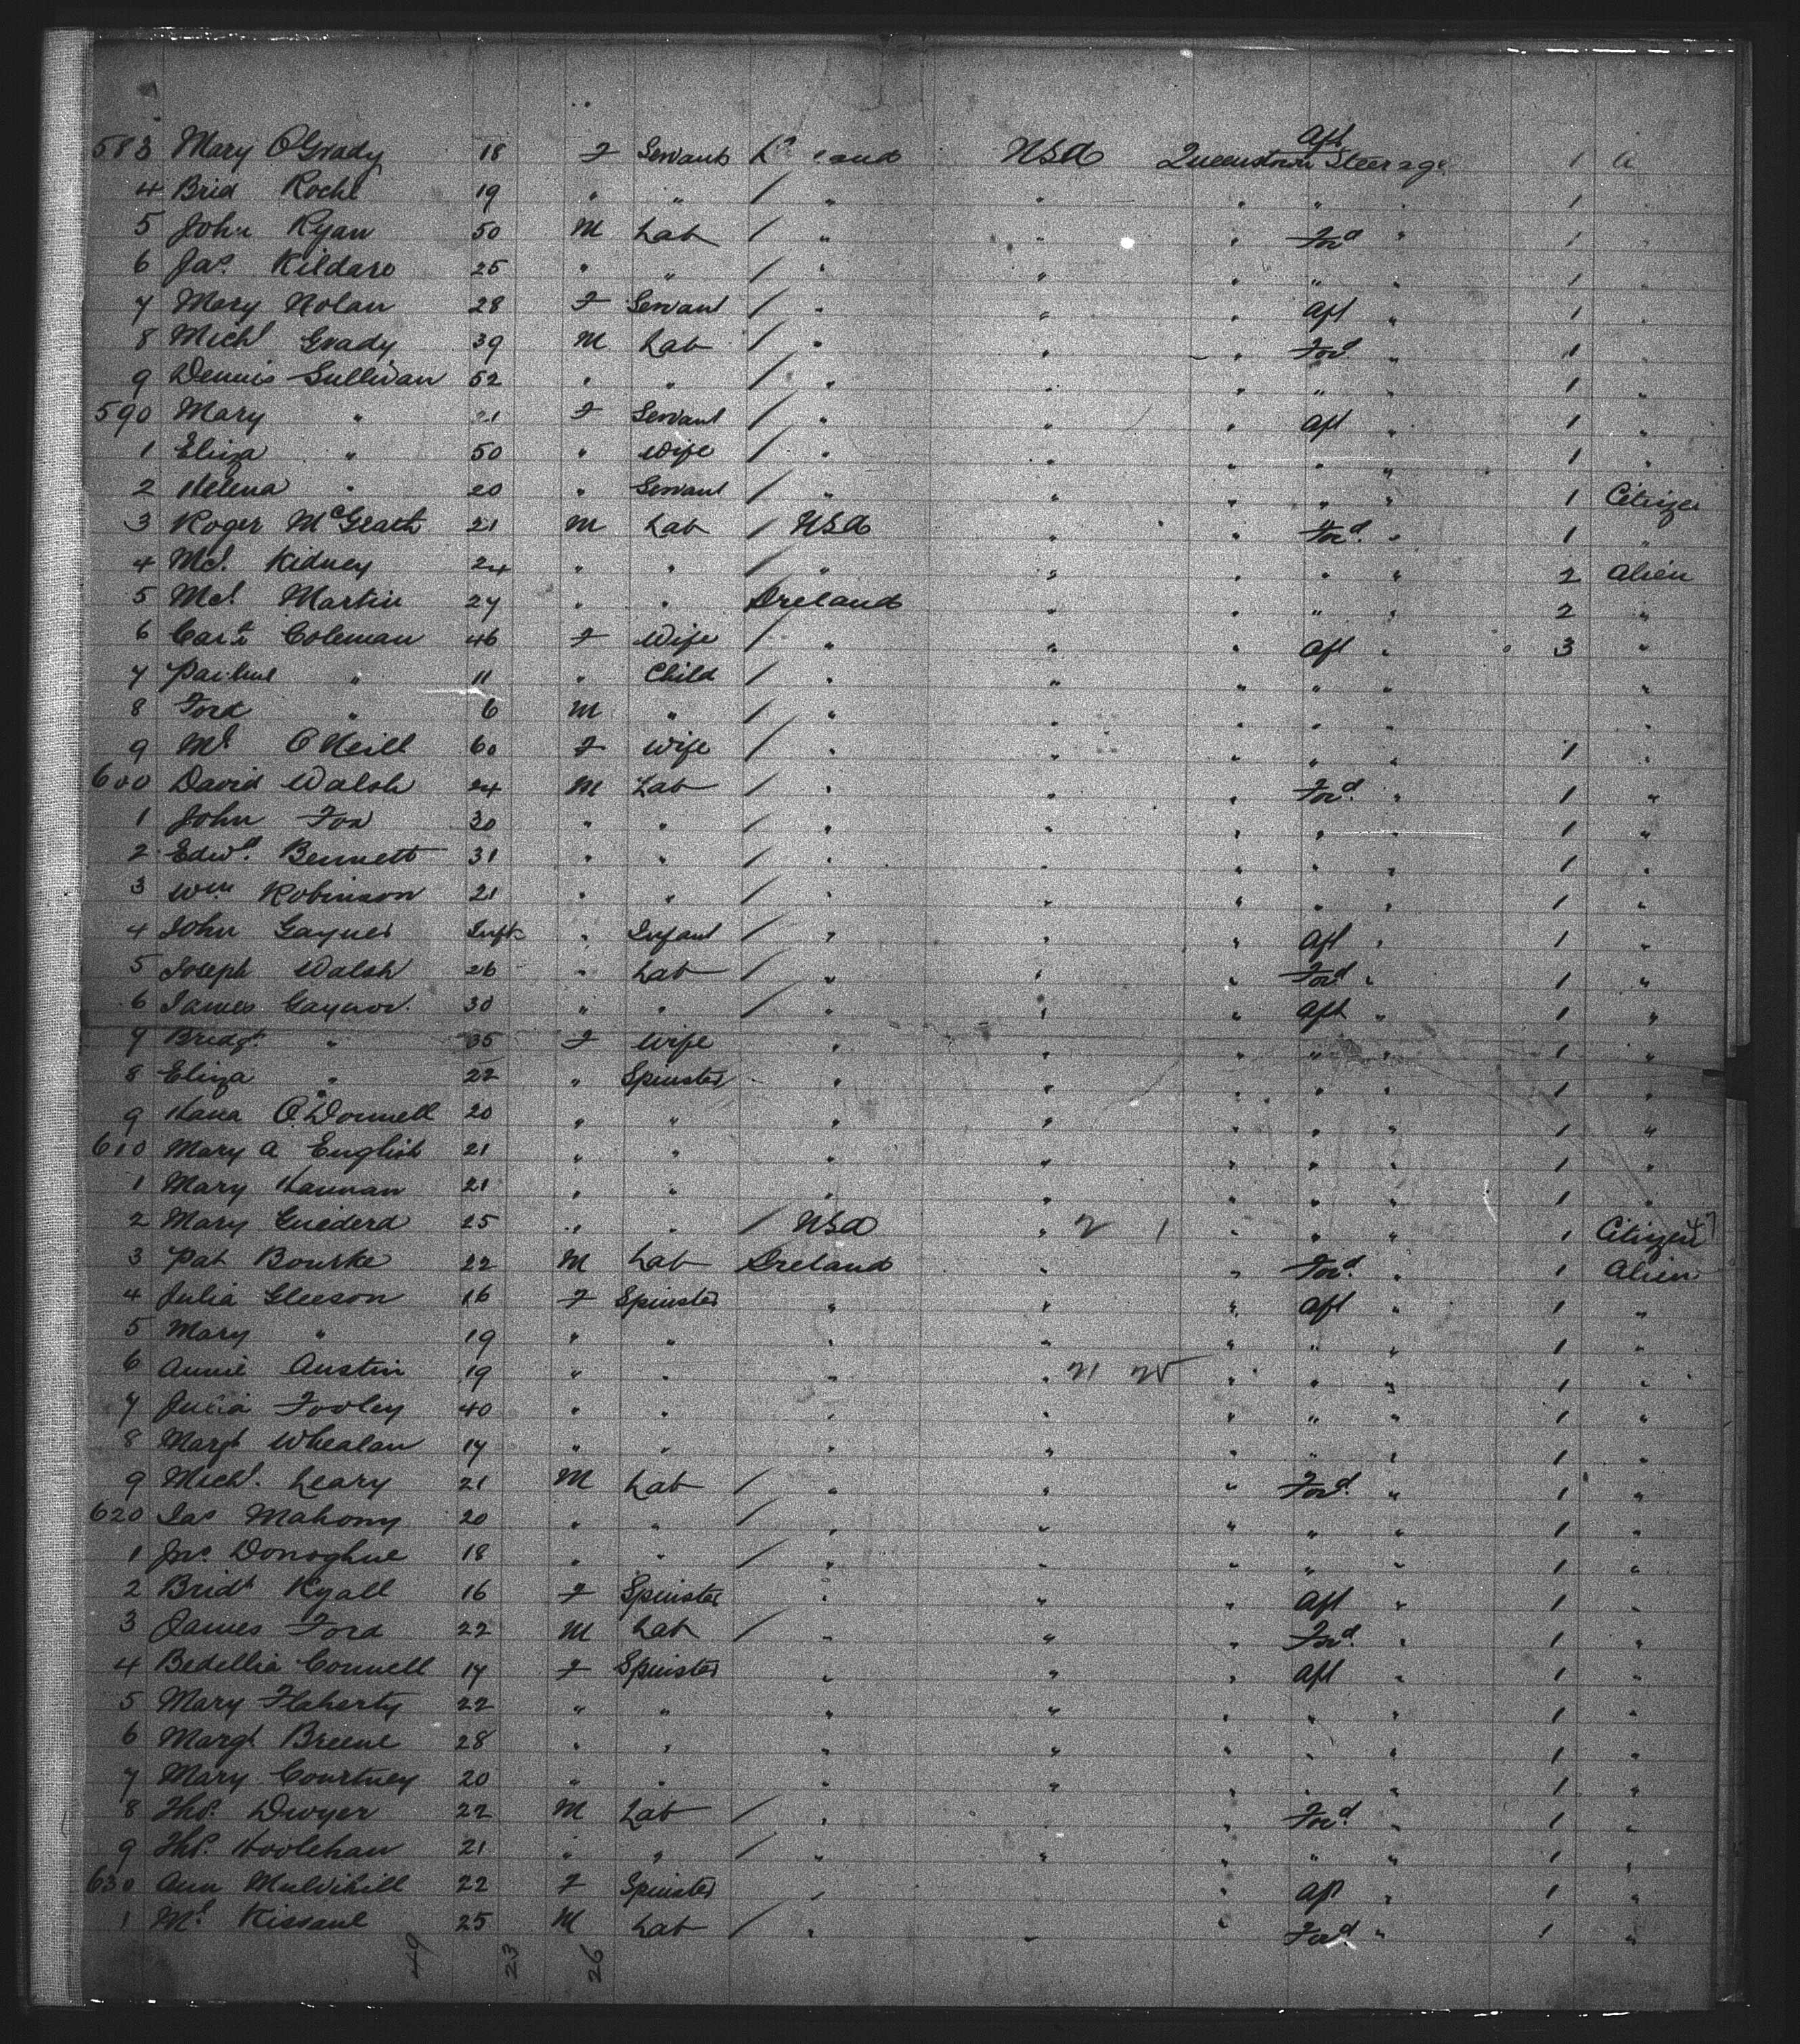 583 Mary O'Grady 18 F Servant USA Queenstown Aft Steerage 1 a
4 Brid Roche 19 " " / " " " " " 1 "
5 John Ryan 50 M Lab / " " " Ford " 1 "
6 Jas Kildare 25 " " / " " " " " 1 "
7 Mary Nolan 28 F Servant / " " " Aft " 1 "
8 Michl Grady 39 M Lab / " " " Ford " 1 "
9 Dennis Sullivan 52 " " / " " " " " 1 "
590 Mary " 21 F Servant / " " " Aft " 1 "
1 Eliza " 50 " Wife / " " " " " 1 "
2 Helena " 20 " Servant / " " " " " 1 Citizen
3 Roger McGrath 21 M Lab / USA " " Ford " 1 "
4 Ml. Kidney 24 " " / " " " " " 2 Alien
5 Ml. Martin 27 " " Ireland " " " " 2 "
6 Coleman 46 F Wife / " " " Aft " 3 "
7 " 11 " Child / " " " " " "
8 Ford " 6 M " / " " " " " "
9 O'Neill 60 F Wife / " " " " " 1 "
600 David Walsh 24 M Lab / " " " Ford " 1 "
1 John Fox 30 " " / " " " " " 1 "
2 Edwd. Bennett 31 " " / " " " " " 1 "
3 Wm Robinson 21 " " / " " " " " 1 "
4 John Gaynor Inft " Infant / " " " Aft " 1 "
5 Joseph Walsh 26 " Lab / " " " Ford " 1 "
6 James Gaynor 30 " " / " " " Aft " 1 "
7 Bridgt " 35 F Wife " " " " " 1 "
8 Eliza " 22 " Spinster " " " " " 1 "
9 Hana O'Donnell 20 " " " " " " " 1 "
610 Mary A English 21 " " " " " " " 1 "
1 Mary Hannan 21 " " " " " " " 1 "
2 Mary 25 " " / USA " 2 1 " " " 1 Citizen
3 Pat Bourke 22 M Lab Ireland " " Ford. " 1 Alien
4 Julia Gleeson 16 F Spinster " " " Aft " 1 "
5 Mary " 19 " " " " " " " 1 "
6 Annie Austin 19 " " " " 21 25 " " " 1 "
7 Julia Fooley 40 " " " " " " " 1 "
8 Margt Whealan 17 " " " " " " " 1 "
9 Michl. Leary 21 M Lab / " " " Ford. " 1 "
620 Jas Mahony 20 " " / " " " " " 1 "
1 Jno. Donoghue 18 " " / " " " " " 1 "
2 Bridt Ryall 16 F Spinster " " " Aft " 1 "
3 James Ford 22 M Lab / " " " Ford. " 1 "
4 Bedellia Connell 17 F Spinster " " " Aft " 1 "
5 Mary Flaherty 22 " " " " " " " 1 "
6 Margt Breene 28 " " " " " " " 1 "
7 Mary Courtney 20 " " " " " " " 1 "
8 Thos. Dwyer 22 M Lab / " " Ford. " 1 "
9 Thos. Hoolehan 21 " " / " " " " " 1 "
630 Ann Mulvihill 22 F Spinster " " Aft " 1 "
1 Ml Kissane 25 M Lab / " " " Ford " 1 "
49 23 26